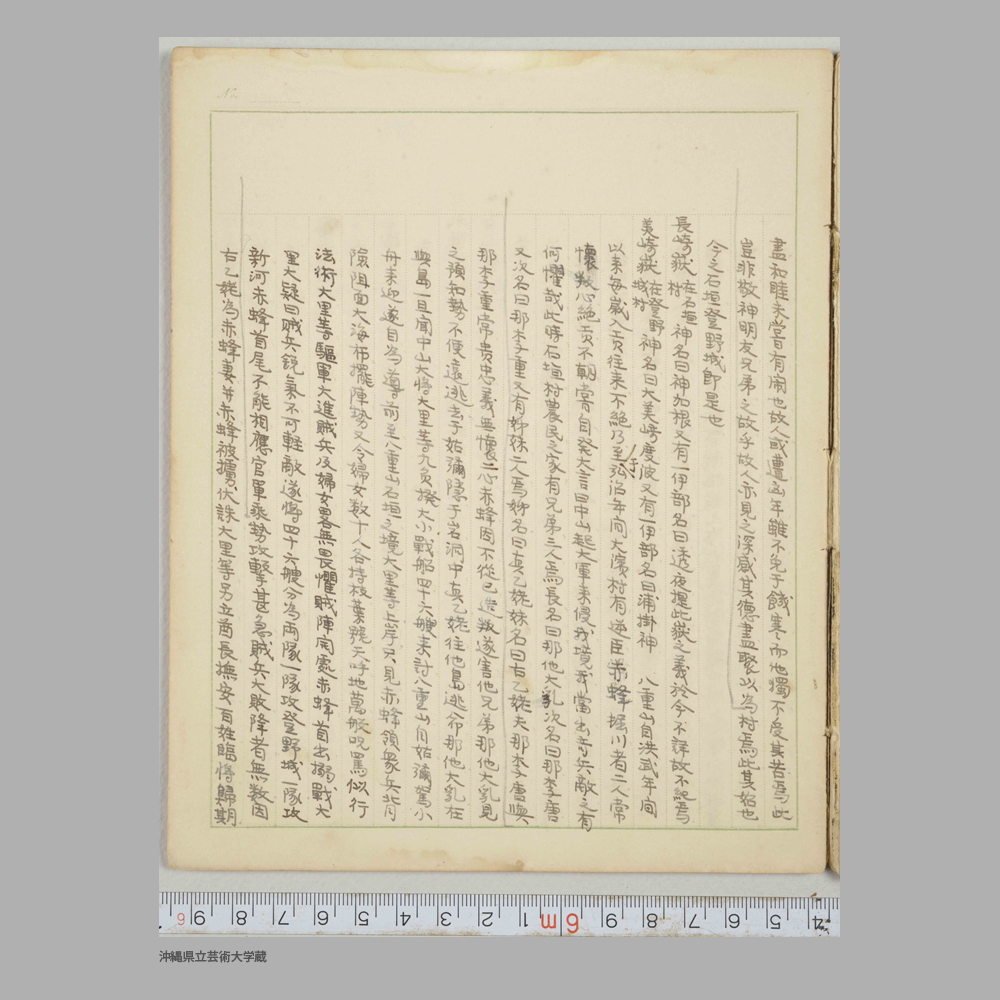 盡和睦未嘗有鬧也故人或遭凶年雖不免于餓寒而他獨不受其苦焉此
豈非敬神明友兄弟之故乎故人亦見之深感其德盡聚以為村焉此其始也
今之石垣登野城即是也
長崎嶽 在石垣村 神名曰神加根又有一伊部名曰透夜提此嶽之義於今不詳故不紀焉
美崎嶽 在登野城村 神名曰大美崎度波又有一伊部名曰浦掛神 八重山自洪武年间
以来每歲入贡往来不絶乃至于弘治年向大濱村有逆臣赤蜂堀川者二人常
懷叛心絶贡不朝嘗自発大言曰中山起大軍来侵我境我當出奇兵敵之有
何懼哉此時石垣村農民之家有兄弟三人焉長名曰那他大乳次名曰那李唐
又次名曰那李重又有姉妹二人焉姉名曰真乙姥妹名曰右乙姥夫那李唐與
那李重常贵忠義無懷二心赤蜂因不從己造叛遂害他兄弟那他大乳見
之預知勢不便遠逃去于姑彌隱于岩洞中真乙姥往他島逃命那他大乳在
與島一旦聞中山大將大里等九負撥大小戰船四十六艘来討八重山月姑彌駕小
舟来迎遂自為導前至八重山石垣之境大里等上岸只見赤蜂領衆兵背
險阻面大海布擺陣势又令婦女数十人各持枝葉號天呼地萬般呪罵似行
法術大里等驅軍大進賊兵及婦女畧無畏懼賊陣完處赤蜂首出搦戰大
里大疑曰賊兵銳氣不可軽敵遂將四十六艘分為兩隊一隊攻登野城一隊攻
新河赤蜂首尾不能相應官軍乘势攻擊甚急賊兵大敗降者無数因
右乙姥為赤蜂妻并赤蜂被擄伏誅大里等另立酋長撫安百姓臨將歸期
12 11 10 9 8 7 6 5 4 3 2 1 6m 9 8 7 6 5 4
沖縄県立芸術大学蔵